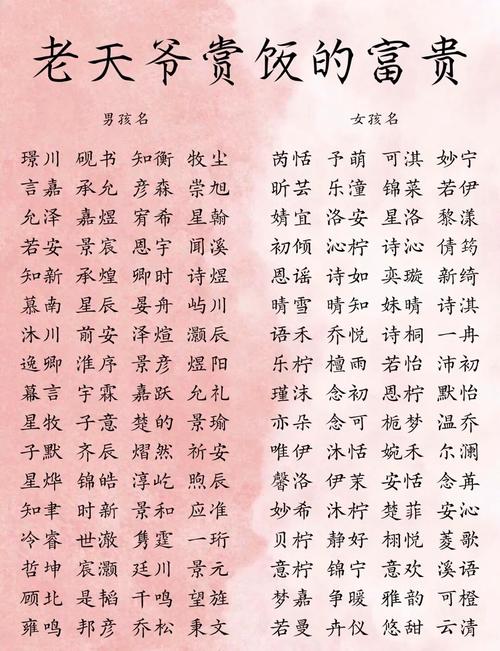 老天爷赏饭的富贵
男孩名 女孩名
璟川 砚书 知衡 牧尘 芮恬 予萌 可淇 妙宁
言嘉 承允 彦森 崇旭 昕芸 乐潼 锦菜 若伊
允泽 嘉煜 宥希 星翰 婧宜 洛安 星洛 黎漾
若安 景宸 恩宇 闻溪 初倾 沁柠 诗沁 倩筠
知新 承煌 卿时 诗煜 恩谣 诗如 奕璇 新绮
慕南 星辰 晏舟 屿川 晴雪 晴知 妹晴 诗淇
沐川 前安 泽煊 灏辰 语禾 乔悦 诗桐 一冉
逸卿 淮序 景彦 煜阳 乐柠 檀雨 若怡 沛初
幕言 宇霖 嘉跃 允礼 瑾沫 念初 恩柠 默怡
星牧 子意 楚的 景瑜 亦朵 念可 栀梦 温乔
子默 齐辰 熠然 祈安 唯伊 沐恬 婉禾 尔澜
星烨 锦皓 淳屹 煦辰 馨洛 伊茉 安恬 念苒
知聿 时新 景和 应准 妙希 沐柠 楚菲 安沁
冷睿 世澈 隽霆 一珩 贝柠 静好 栩悦 菱歌
哲坤 宸灏 廷川 景元 意柠 锦宁 意欢 溪语
顾北 是韬 千鸣 望旌 梦嘉 争暖 雅韵 可橙
雍鸣 邦彦 乔松 秉文 若曼 卉仪 悠甜 云清